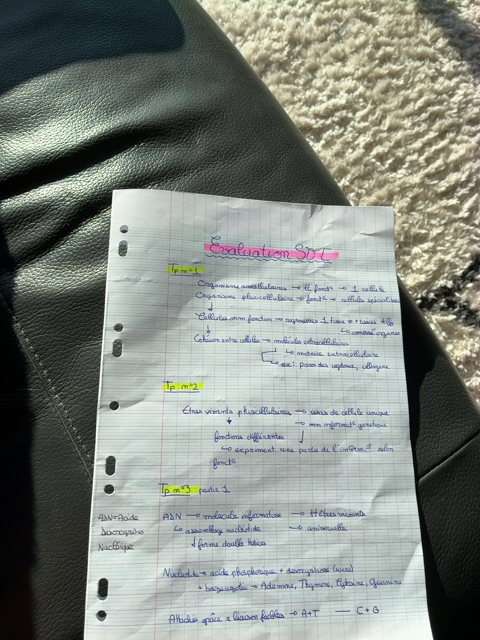 Evaluation SVT
Tp n°1
Organismes unicellulaires → tt fonct° → 1 cellule
Organisme pluricellulaire → fonct° → cellules spécialisées
Cellules mm fonction → regroupées 1 tissu → + tissus diff
↳ composé organes
Cohésion entre cellules → molécules extracellulaires
↳ matrice extracellulaire
↳ ex: paroi des végétaux, collagène
Tp n°2
Etres vivants pluricellulaires → issus de cellule unique
→ mm informat° génétique
fonctions différentes
↳ expriment une partie de l'inform.at° selon
fonct°
Tp n°3 partie 1
ADN = Acide
Desoxyribo
Nucléique
ADN → molécule informature → tt êtres vivants
↳ assemblage nucléotide → universelle
↓ forme double hélice
Nucléotide → acide phosphorique + desoxyribose (sucre)
+ base azotée → Adenine, Thymine, Cytosine, Guanine
Attachés grâce à liaison faibles → A+T — C+G